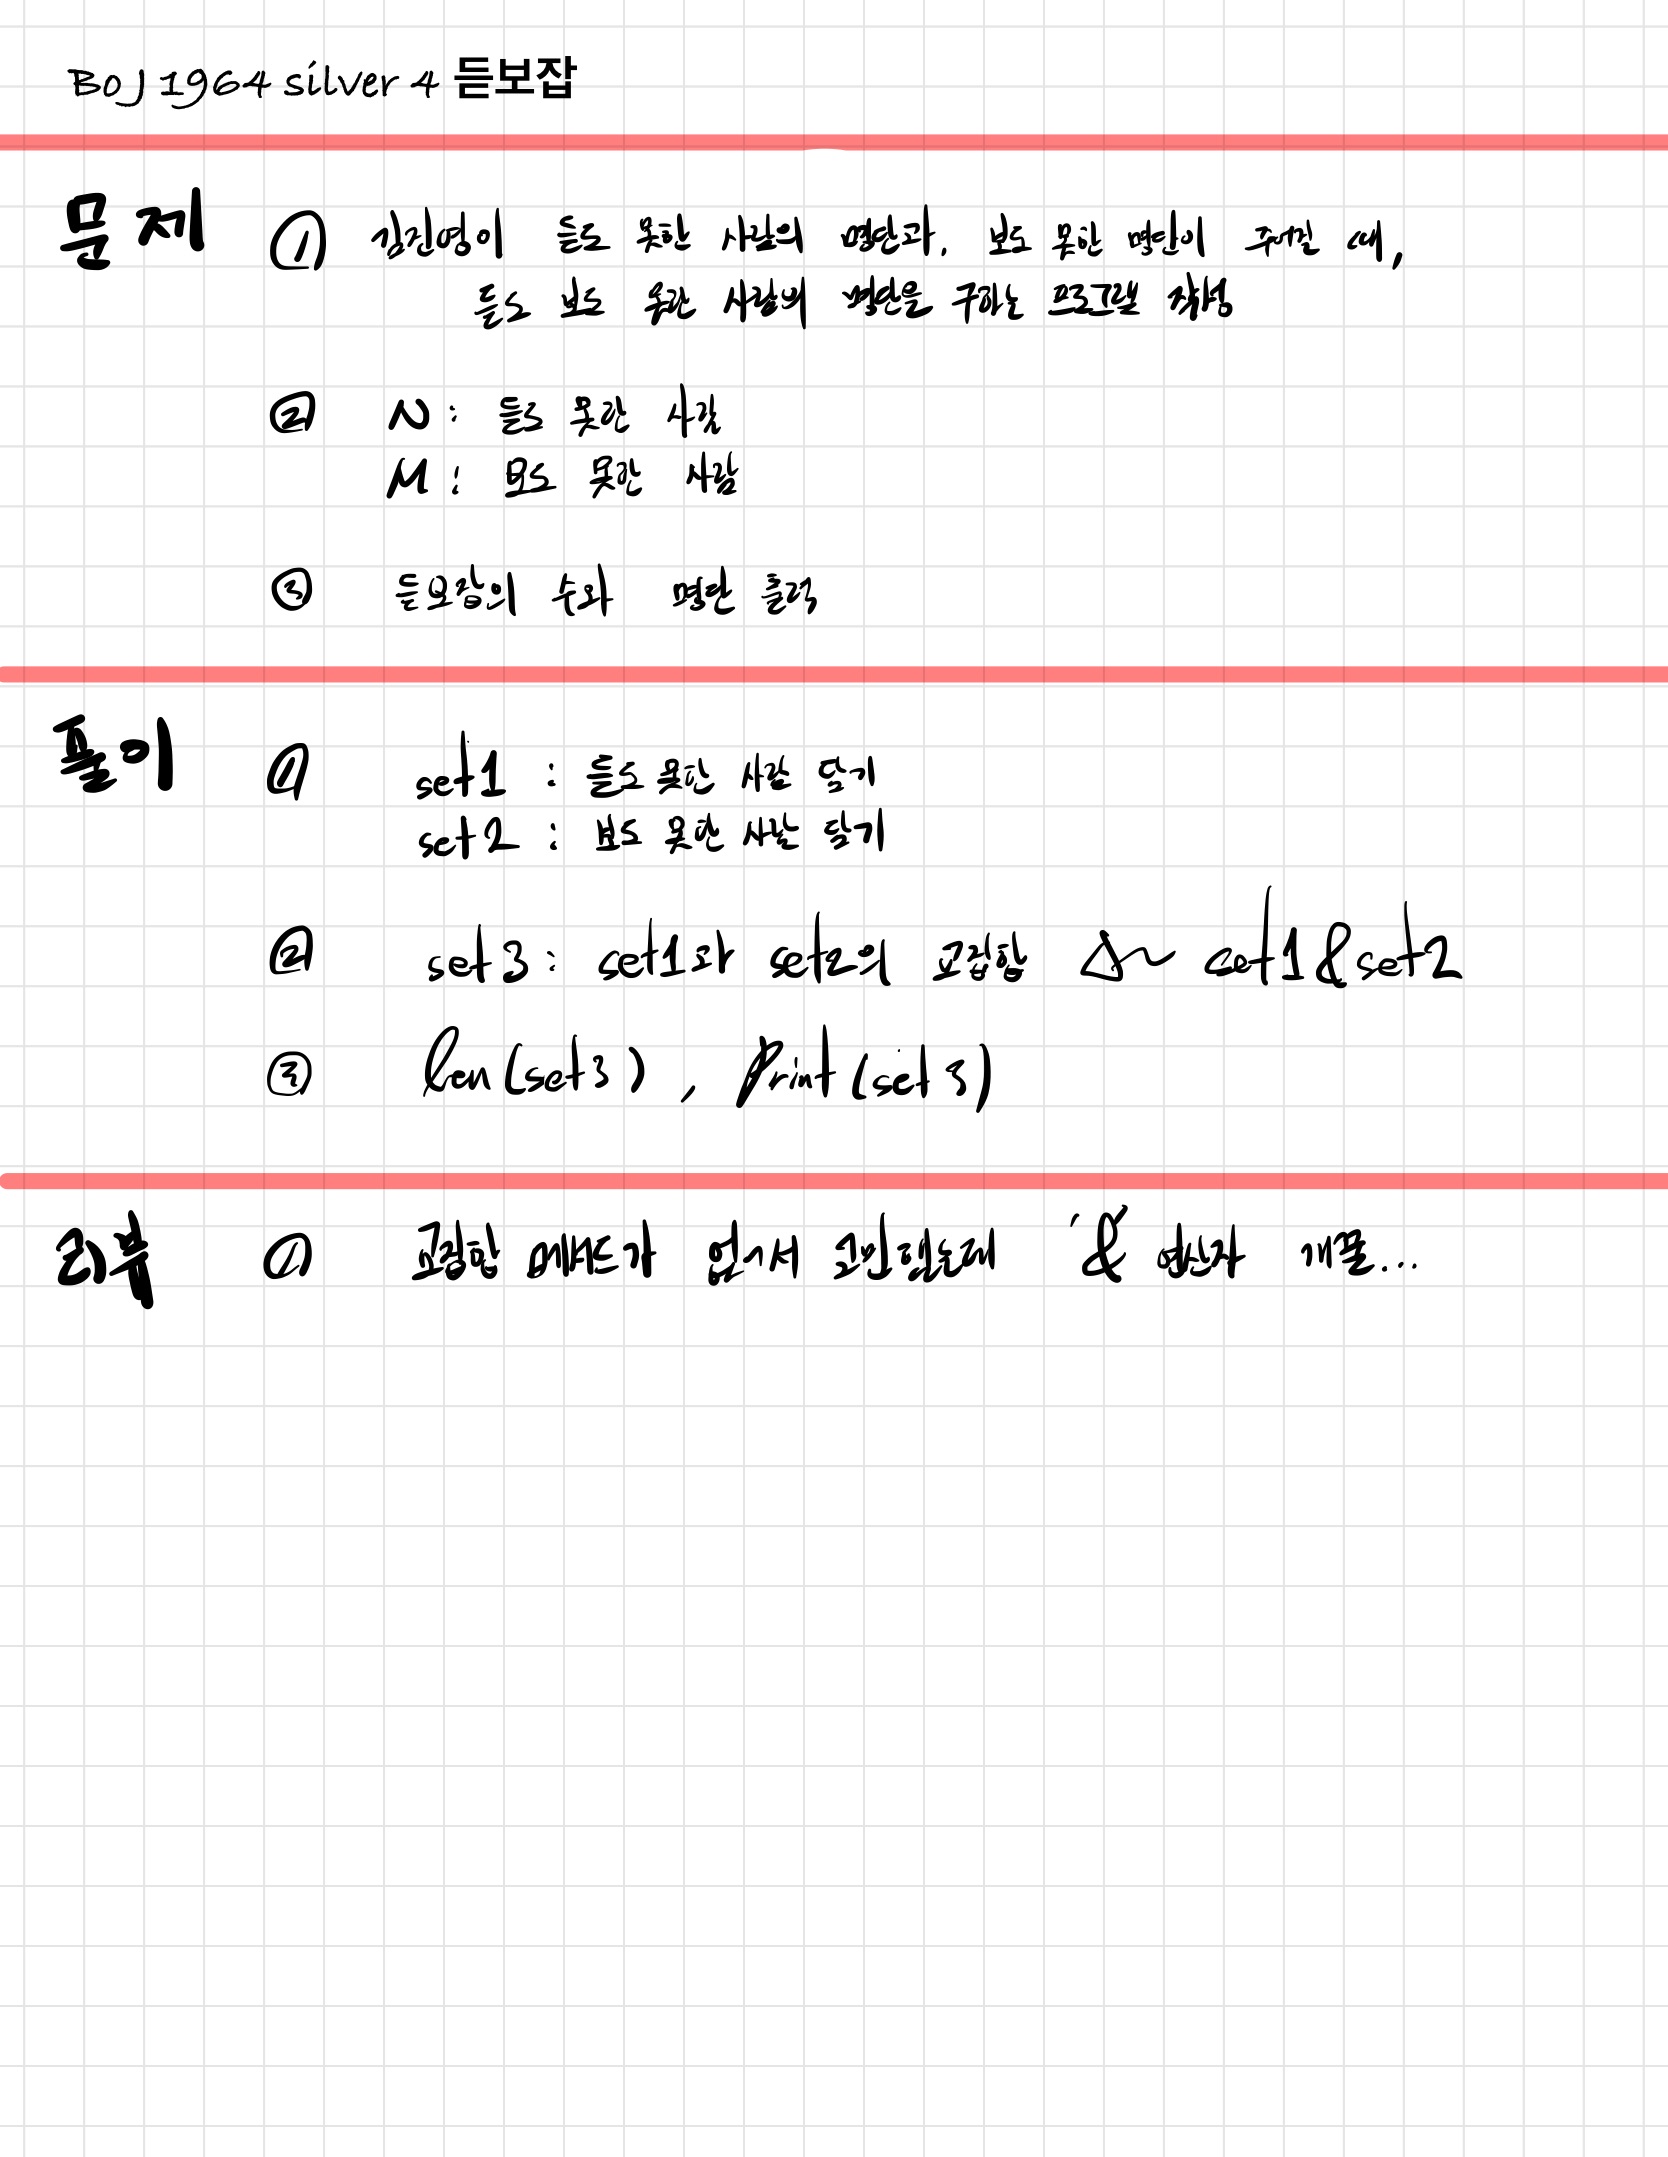 BOJ 1964 silver 4 듣보잡
문제 ① 김진영이 듣도 못한 사람의 명단과, 보도 못한 명단이 주어질 때,
듣도 보도 못한 사람의 명단을 구하는 프로그램 작성
② N : 듣도 못한 사람
M : 보도 못한 사람
③ 듣보잡의 수와 명단 출력
풀이 ① set1 : 듣도 못한 사람 담기
set2 : 보도 못한 사람 담기
② set3 : set1과 set2의 교집합 set1&set2
③ len(set3) , Print(set3)
리뷰 ① 교집합 메서드가 없어서 고민했는데 '&' 연산자 개꿀...